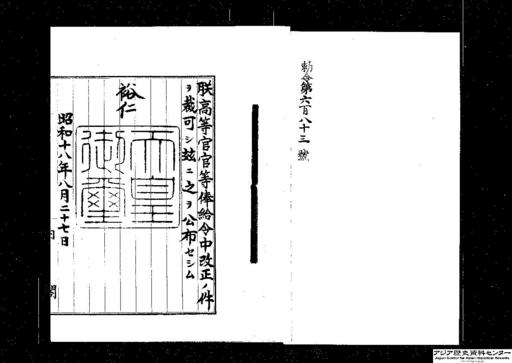 勅令第六百八十三號
朕高等官官等俸給令中改正ノ件
ヲ裁可シ玆ニ之ヲ公布セシム
裕仁
天皇
御璽
昭和十八年八月二十七日
内閣
アジア歴史資料センター
Japan Center for Asian Historical Records